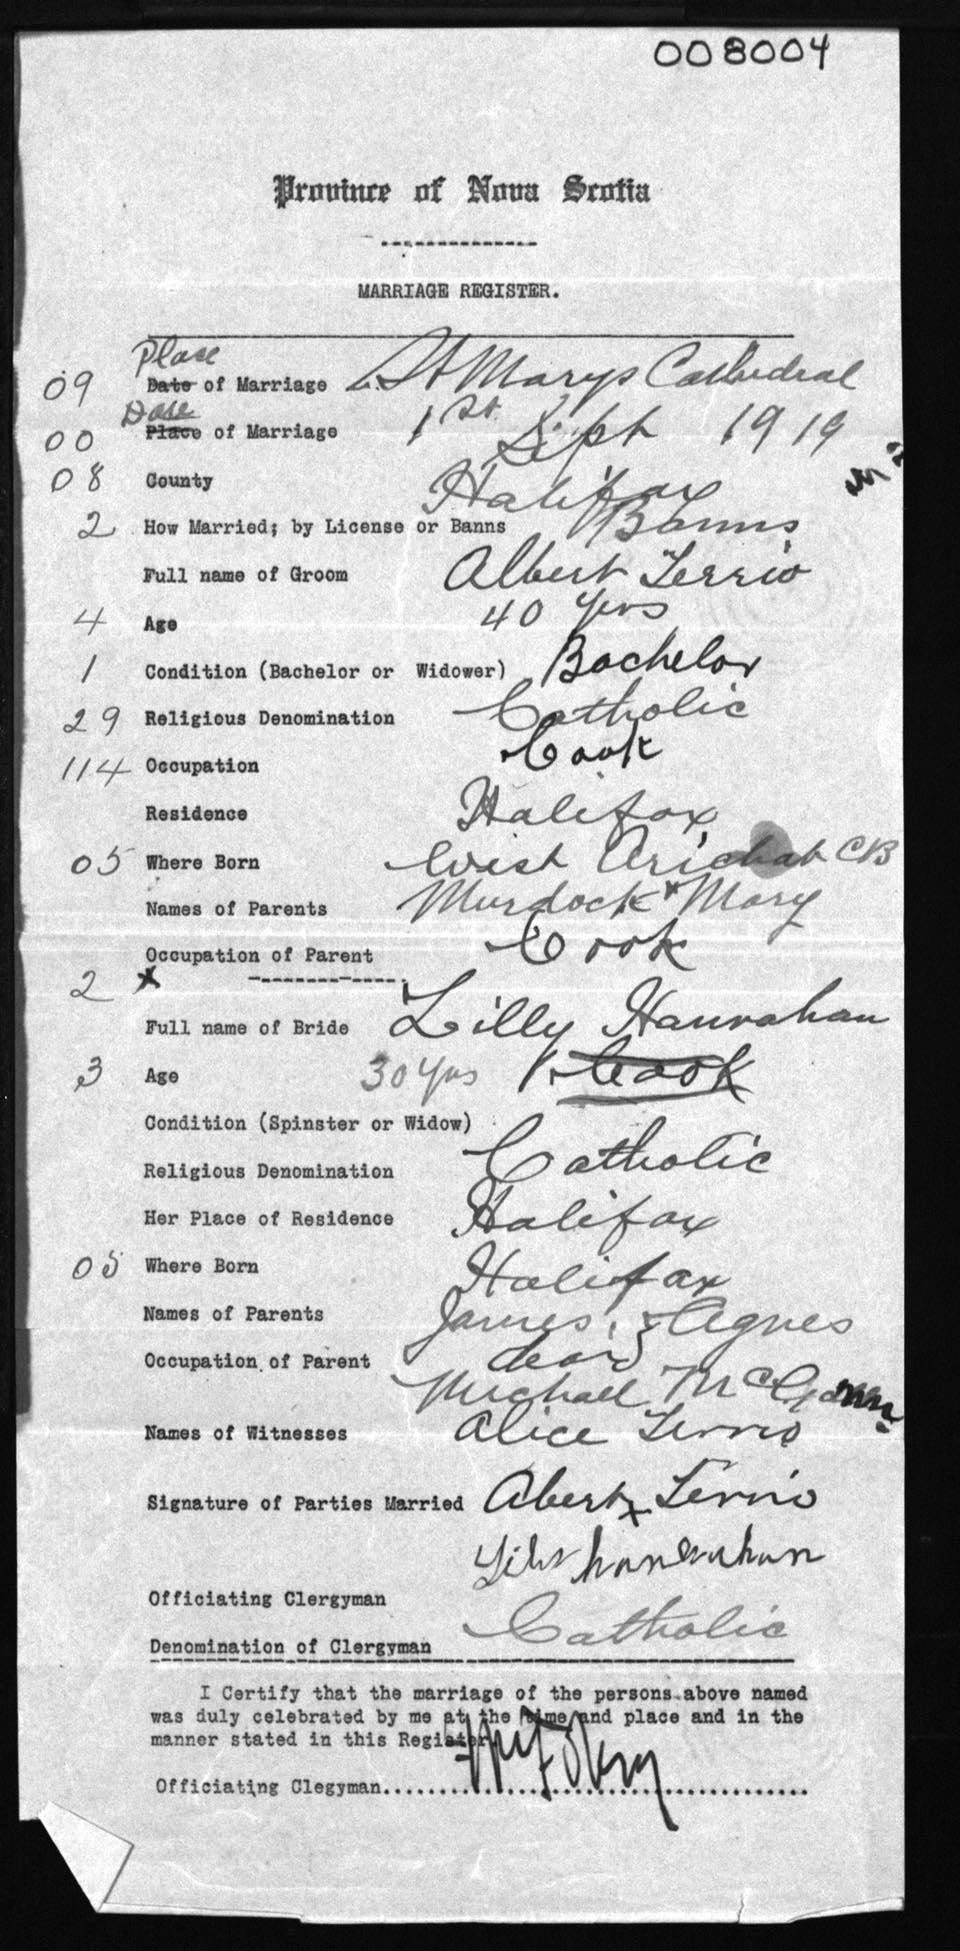 008004
Province of Nova Scotia
MARRIAGE REGISTER.
Place
09 Date of Marriage St Marys Cathedral
Date
00 Place of Marriage 1st Sept 1919
08 County Halifax
2 How Married; by License or Banns Banns
Full name of Groom Albert Terrio
4 Age 40 yrs
1 Condition (Bachelor or Widower) Bachelor
29 Religious Denomination Catholic
114 Occupation Cook
Residence Halifax
05 Where Born West Arichat CB
Names of Parents Murdock + Mary
Occupation of Parent Cook
2 x
Full name of Bride Lilly Hanrahan
3 Age 30 yrs 1 Cook
Condition (Spinster or Widow)
Religious Denomination Catholic
Her Place of Residence Halifax
05 Where Born Halifax
Names of Parents James & Agnes
Occupation of Parent dead
Michael
Names of Witnesses Alice Terrio
Signature of Parties Married Abert x Terrio
Officiating Clergyman
Denomination of Clergyman Catholic
I Certify that the marriage of the persons above named
was duly celebrated by me at the time and place and in the
manner stated in this Register
Officiating Clegyman